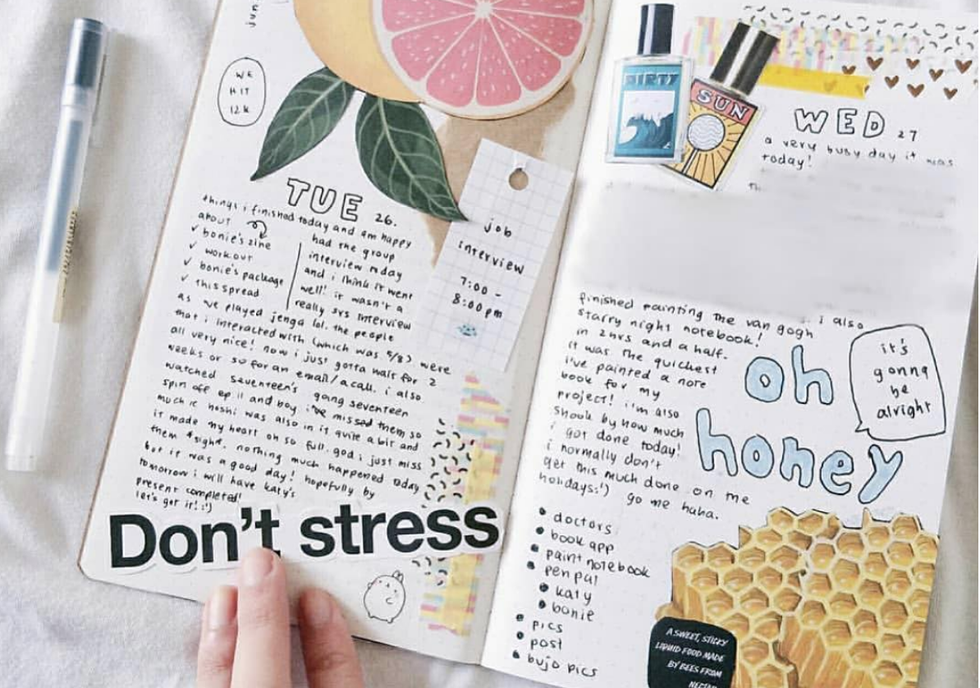 WE
HIT
12K
TUE 26.
things i finished today and am happy
about
✓ bonie's zine
✓ workout
✓ bonie's package
✓ this spread
had the group
interview today
and i think it went
well! it wasn't a
really srs interview
as we played jenga lol. the people
that i interacted with (which was 5/8) were
all very nice! now i just gotta wait for 2
weeks or so for an email/a call. i also
watched seventeen's going seventeen
spin off ep 11 and boy i've missed them so
much :c hoshi was also in it quite a bit and
it made my heart oh so full. god i just miss
them *sigh*. nothing much happened today
but it was a good day! hopefully by
tomorrow i will have katy's
present completed!
let's get it! :')
Don't stress
job
interview
7:00 -
8:00pm
DIRTY
SUN
WED 27
a very busy day it was
today!
i also
finished painting the van gogh
starry night notebook!
in 2hrs and a half.
it was the quickest
i've painted a note
book for my
project! i'm also
shook by how much
i got done today!
i normally don't
get this much done on the
holidays:') go me haha.
oh
honey
it's
gonna
be
alright
• doctors
• book app
• paint notebook
• pen pal
• katy
• bonie
• pics
• post
• bujo pics
A SWEET, STICKY
LIQUID FOOD MADE
BY BEES FROM
NECTAR